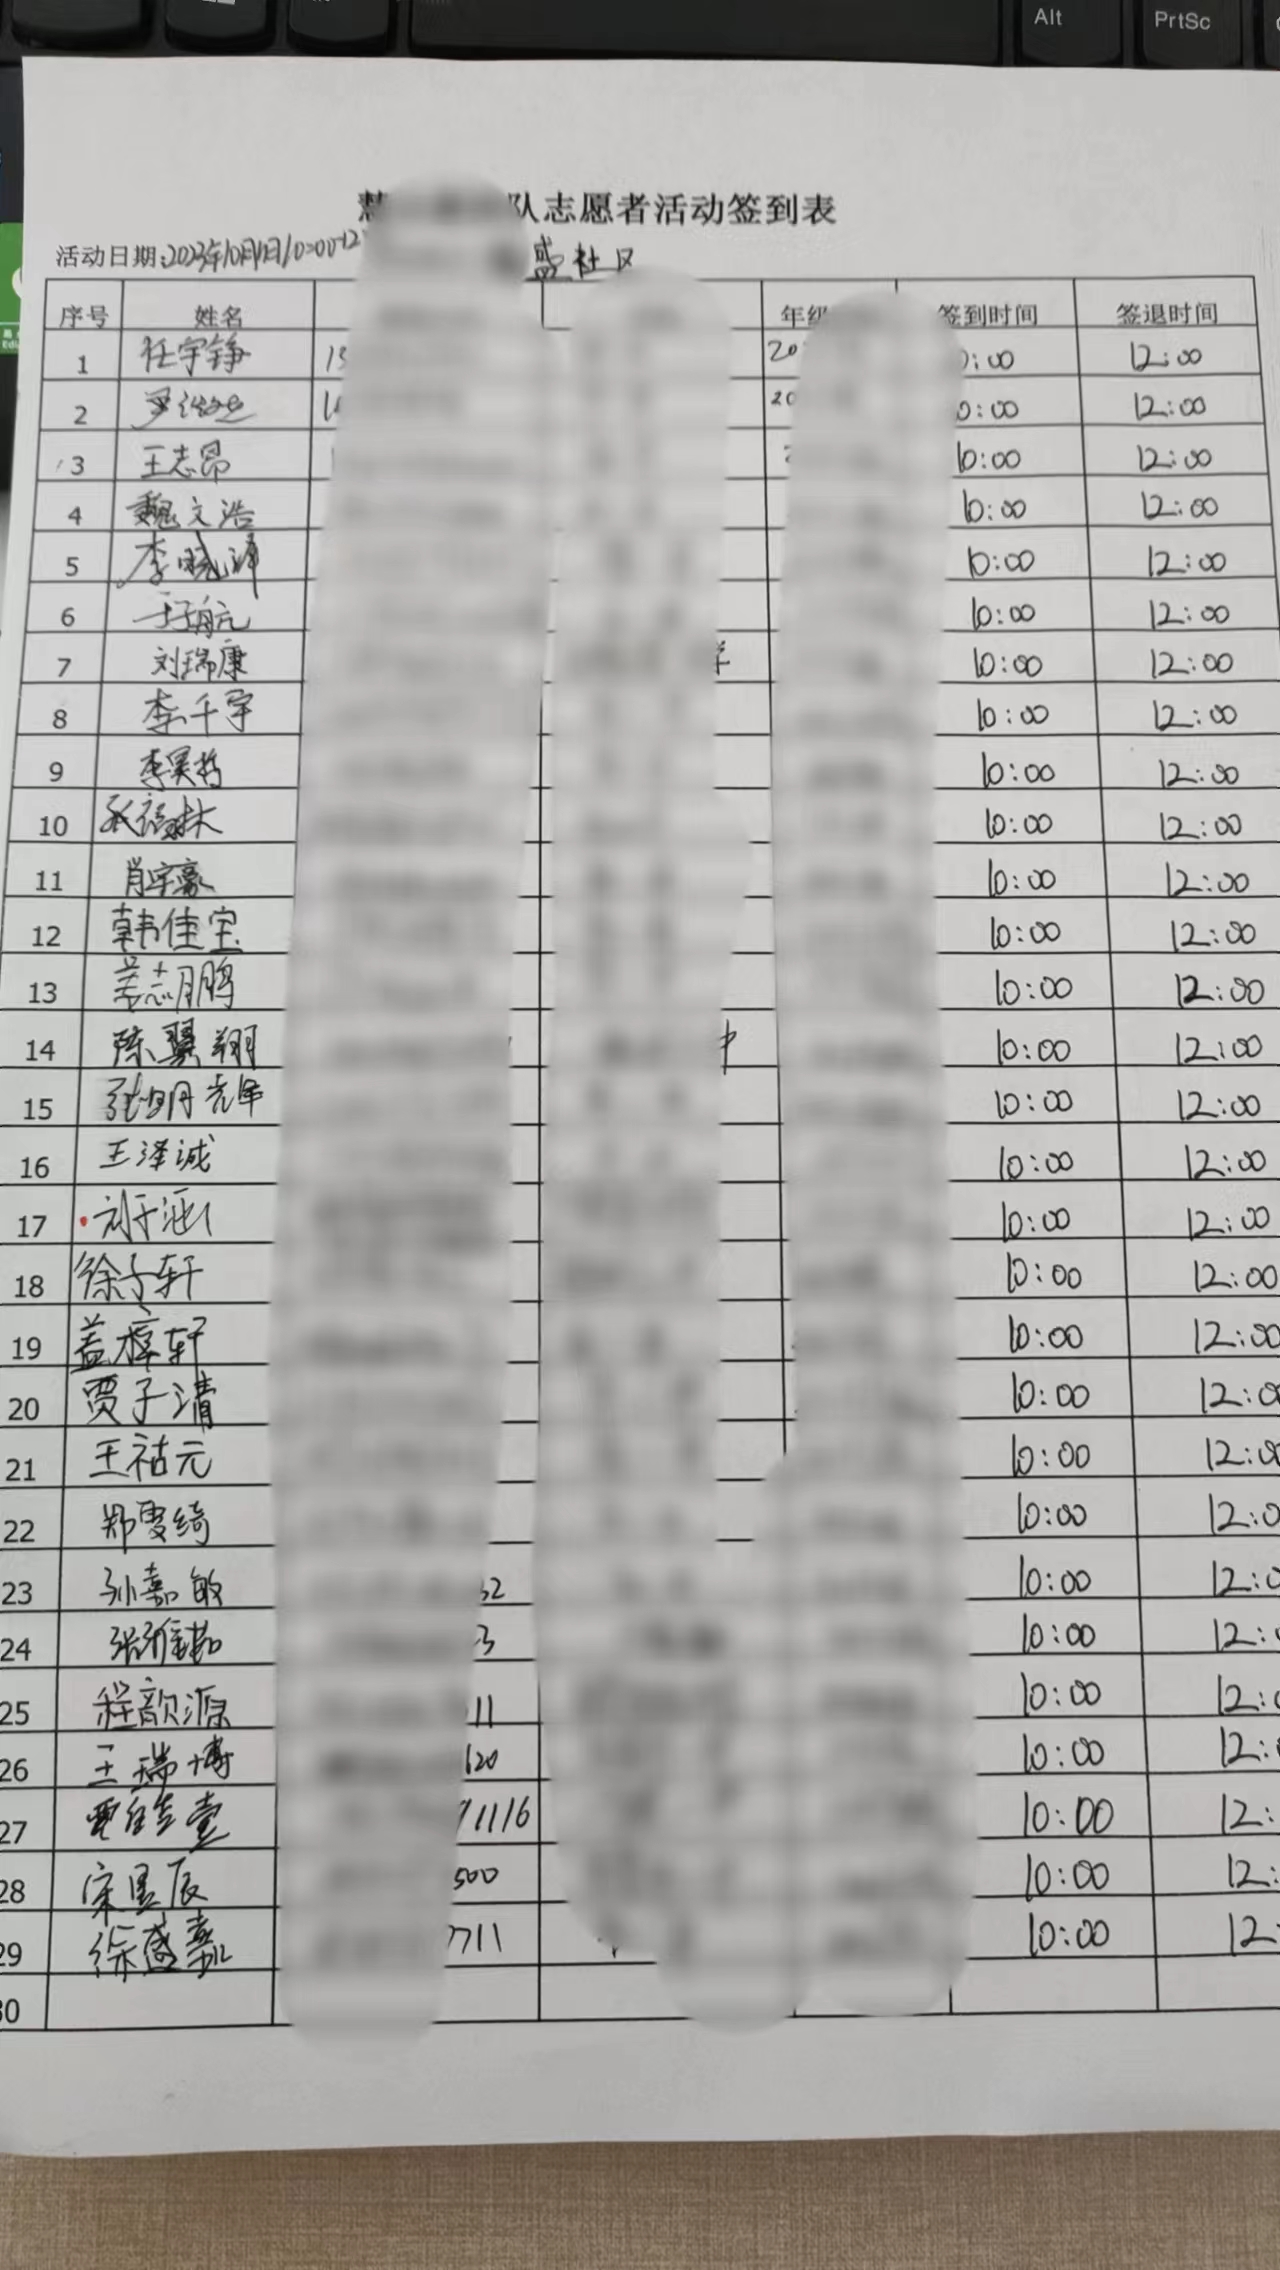 Alt PrtSc
队志愿者活动签到表
活动日期:2023年10月 日10:00-12
盛社区
序号 姓名 年级 签到时间 签退时间
1 任宇铮 15 20 0:00 12:00
2 罗 20 0:00 12:00
3 王志昂 10:00 12:00
4 魏文浩 10:00 12:00
5 李晓 10:00 12:00
6 于子航 10:00 12:00
7 刘瑞康 10:00 12:00
8 李千宇 10:00 12:00
9 李昊哲 10:00 12:00
10 10:00 12:00
11 肖宇豪 10:00 12:00
12 韩佳宝 10:00 12:00
13 姜志鹏 10:00 12:00
14 陈翼翔 中 10:00 12:00
15 张明 10:00 12:00
16 王泽诚 10:00 12:00
17 刘于涵 10:00 12:00
18 徐子轩 10:00 12:00
19 盖梓轩 10:00 12:00
20 贾子清 10:00 12:00
21 王祜元 10:00 12:00
22 郑雯绮 10:00 12:0
23 孙嘉敏 62 10:00 12:0
24 张 3 10:00 12:
25 程歆源 11 10:00 12:0
26 王瑞博 620 10:00 12:
27 1116 10:00 12:
28 宋昱辰 500 10:00 12:
29 徐盛嘉 7711 10:00 12
30